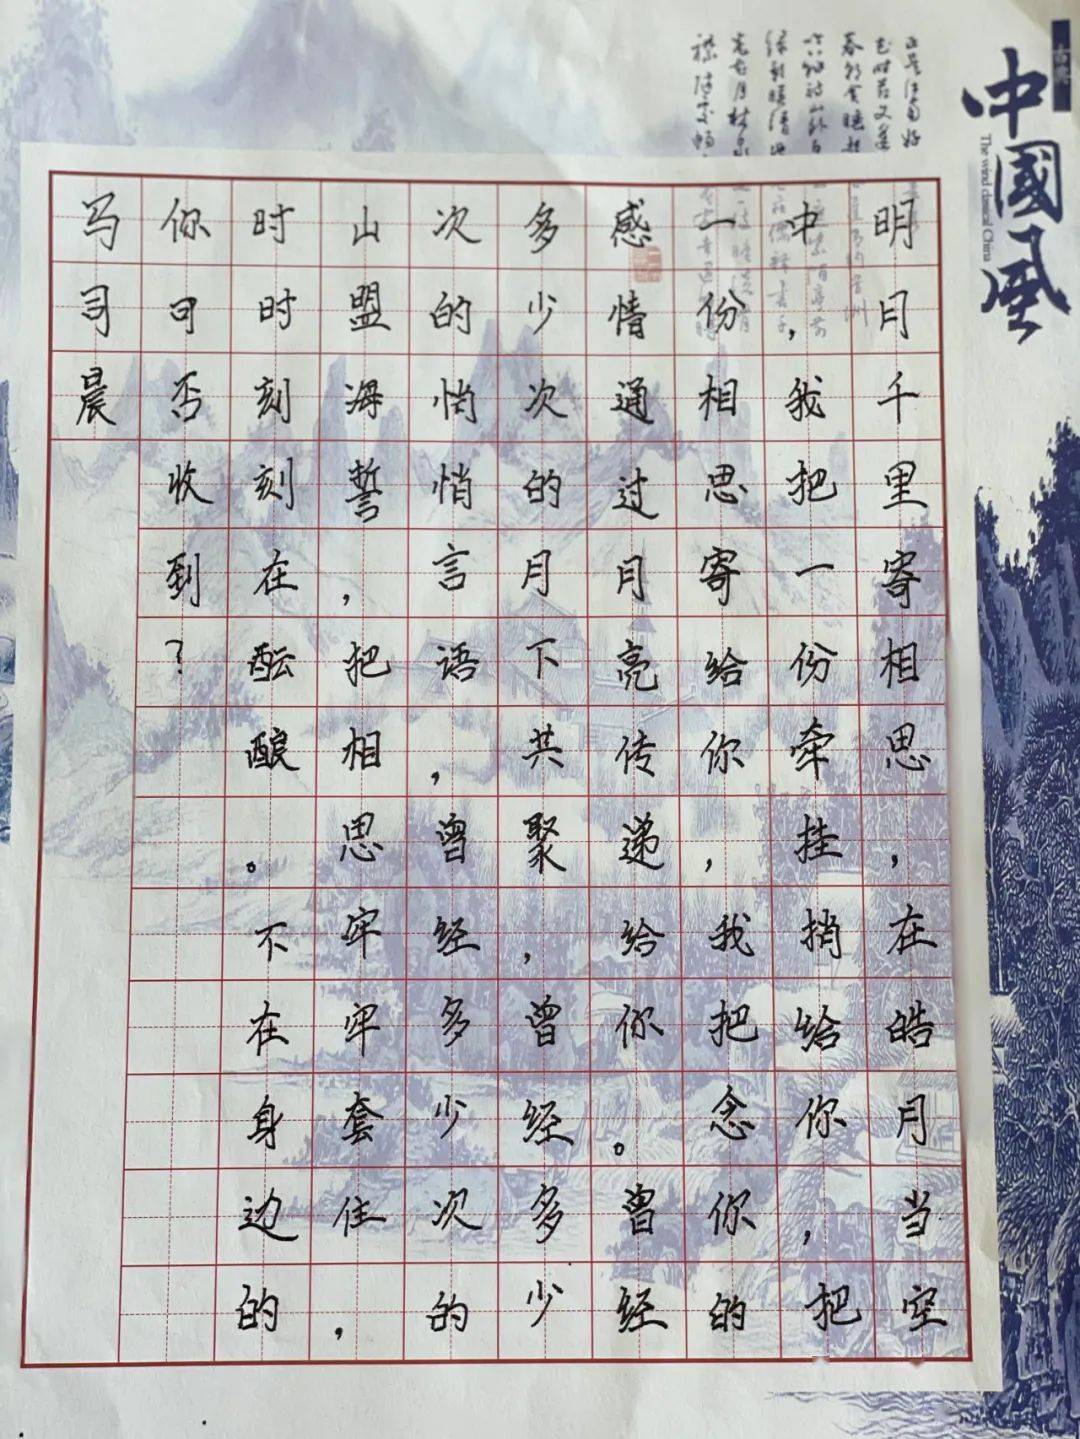 中國風
明月千里寄相思，在皓月当空
中，我把一份牵挂捎给你，把
一份相思寄给你，我把念你的
感情通过月亮传递给你。曾经
多少次的月下共聚，曾经多少
次的悄悄言语，曾经多少次的
山盟海誓，把相思牢牢套住，
时时刻刻在酝酿。不在身边的
你可否收到？
马司晨